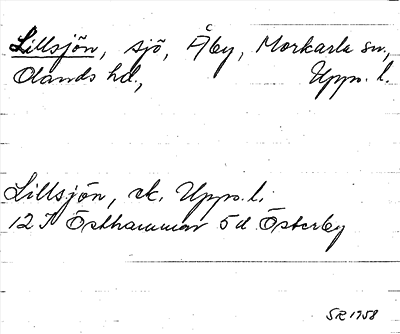 Lillsjön, sjö, Åby, Morkarla sn,
Olands hd, Upps. l.
Lillsjön, ek. Upps. l.
12 I Östhammar 5d Österby
SR 1958